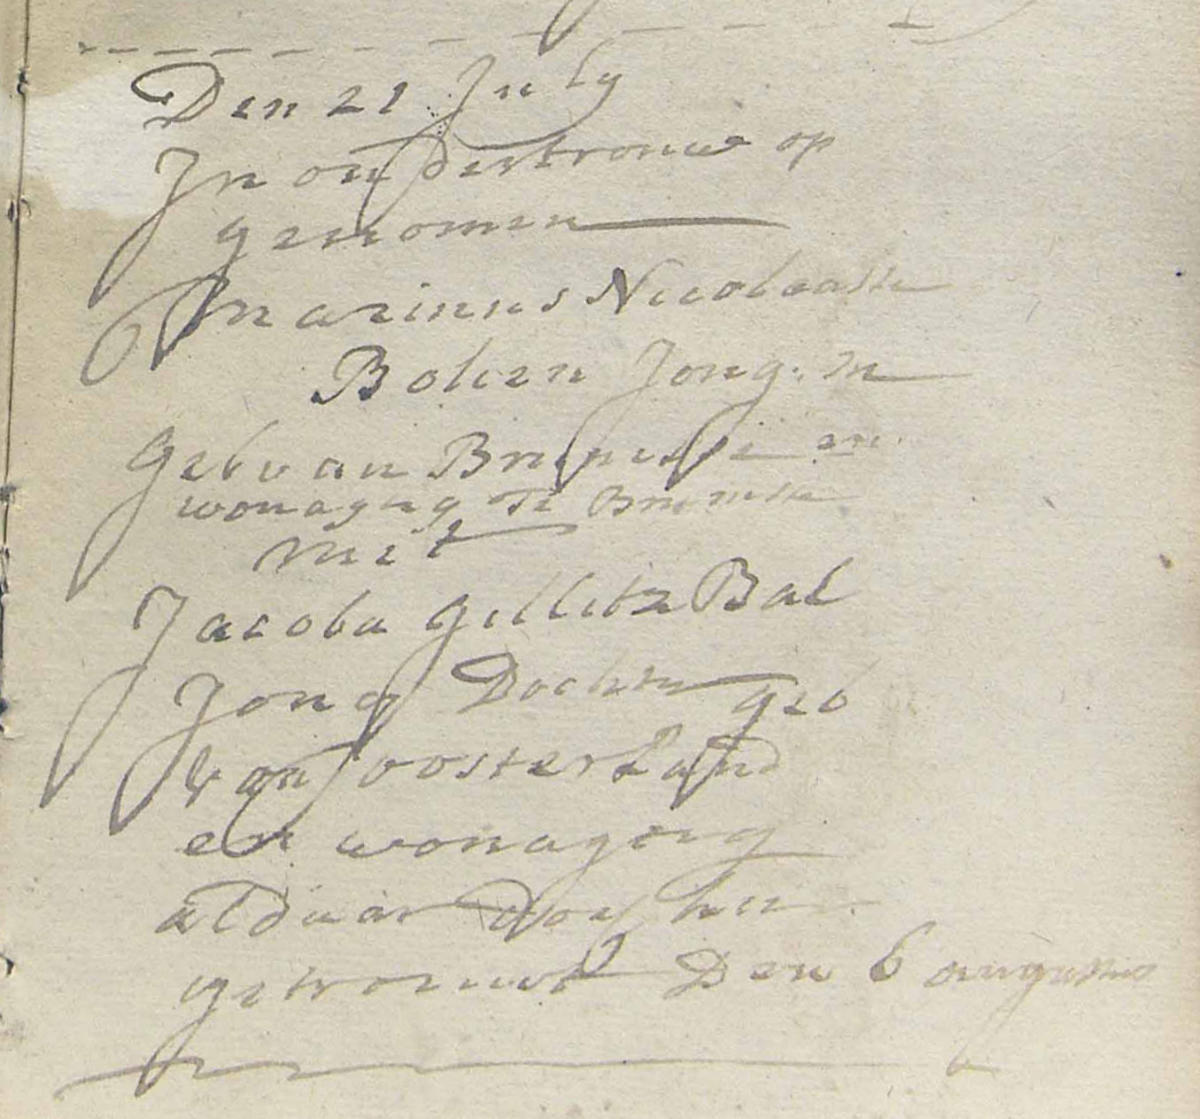 Den 21 July
In ondertrouw op
genomen
Marinus Nicolaasse
Bolien Jong. m
geb van Bruinisse en
wonagtig Te Bruinisse
met
Jacoba Gillitse Bal
Jong Dochter geb
van oosterland
en wonagtig
aldaar
getrouwt Den 6 augustus